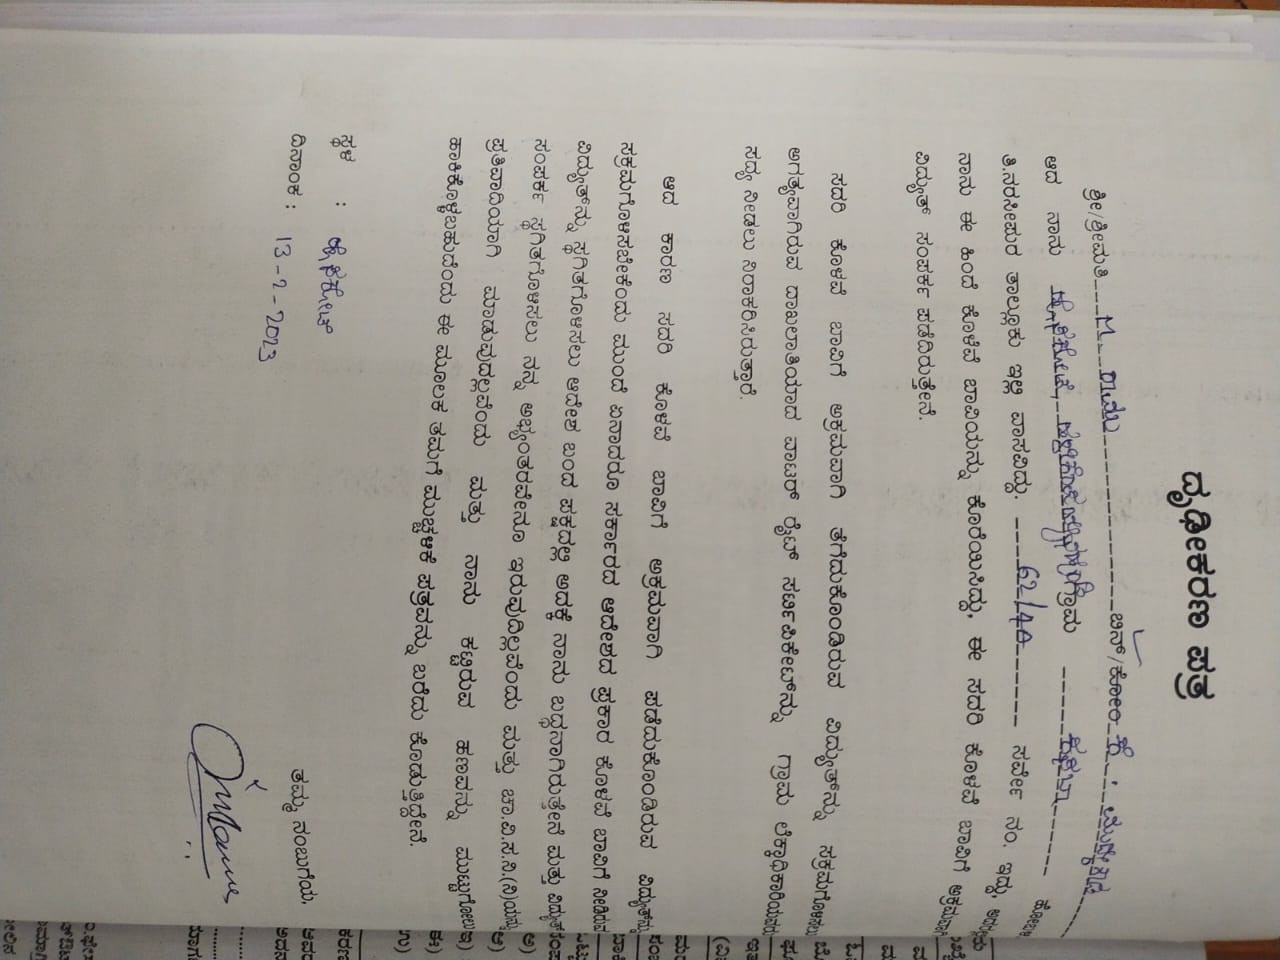 ದೃಢೀಕರಣ ಪತ್ರ
ಶ್ರೀ/ಶ್ರೀಮತಿ M. ರಾಮು ಬಿನ್/ಕೋಂ
ಆದ ನಾನು ಗ್ರಾಮ ಕಸಬಾ ಹೋಬಳಿ
ತಿ.ನರಸೀಪುರ ತಾಲ್ಲೂಕು ಇಲ್ಲಿ ವಾಸವಿದ್ದು. 62/4A ಸರ್ವೇ ನಂ. ಇದ್ದು,
ನಾನು ಈ ಹಿಂದೆ ಕೊಳವೆ ಬಾವಿಯನ್ನು ಕೊರೆಯಿಸಿದ್ದು, ಈ ಸದರಿ ಕೊಳವೆ ಬಾವಿಗೆ ಅಕ್ರಮವಾಗಿ
ವಿದ್ಯುತ್ ಸಂಪರ್ಕ ಪಡೆದಿರುತ್ತೇನೆ.
ಸದರಿ ಕೊಳವೆ ಬಾವಿಗೆ ಅಕ್ರಮವಾಗಿ ತೆಗೆದುಕೊಂಡಿರುವ ವಿದ್ಯುತ್‌ನ್ನು ಸಕ್ರಮಗೊಳಿಸಲು
ಅಗತ್ಯವಾಗಿರುವ ದಾಖಲಾತಿಯಾದ ವಾಟರ್ ರೈಟ್ ಸರ್ಟಿಫಿಕೇಟ್‌ನ್ನು ಗ್ರಾಮ ಲೆಕ್ಕಾಧಿಕಾರಿಯವರು
ಸದ್ಯ ನೀಡಲು ನಿರಾಕರಿಸಿರುತ್ತಾರೆ.
ಆದ ಕಾರಣ ಸದರಿ ಕೊಳವೆ ಬಾವಿಗೆ ಅಕ್ರಮವಾಗಿ ಪಡೆದುಕೊಂಡಿರುವ ವಿದ್ಯುತ್‌ನ್ನು
ಸಕ್ರಮಗೊಳಿಸಬೇಕೆಂದು ಮುಂದೆ ಏನಾದರೂ ಸರ್ಕಾರದ ಆದೇಶದ ಪ್ರಕಾರ ಕೊಳವೆ ಬಾವಿಗೆ ನೀಡಿರುವ
ವಿದ್ಯುತ್‌ನ್ನು ಸ್ಥಗಿತಗೊಳಿಸಲು ಆದೇಶ ಬಂದ ಪಕ್ಷದಲ್ಲಿ ಅದಕ್ಕೆ ನಾನು ಬದ್ಧನಾಗಿರುತ್ತೇನೆ ಮತ್ತು ವಿದ್ಯುತ್
ಸಂಪರ್ಕ ಸ್ಥಗಿತಗೊಳಿಸಲು ನನ್ನ ಅಭ್ಯಂತರವೇನೂ ಇರುವುದಿಲ್ಲವೆಂದು ಮತ್ತು ಚಾ.ವಿ.ಸ.ನಿ.(ನಿ)ಯನ್ನು
ಪ್ರತಿವಾದಿಯಾಗಿ ಮಾಡುವುದಿಲ್ಲವೆಂದು ಮತ್ತು ನಾನು ಕಟ್ಟಿರುವ ಹಣವನ್ನು ಮುಟ್ಟುಗೋಲು
ಹಾಕಿಕೊಳ್ಳಬಹುದೆಂದು ಈ ಮೂಲಕ ತಮಗೆ ಮುಚ್ಚಳಿಕೆ ಪತ್ರವನ್ನು ಬರೆದು ಕೊಡುತ್ತಿದ್ದೇನೆ.
ತಮ್ಮ ನಂಬುಗೆಯ,
ಸ್ಥಳ :
ದಿನಾಂಕ : 13-2-2023